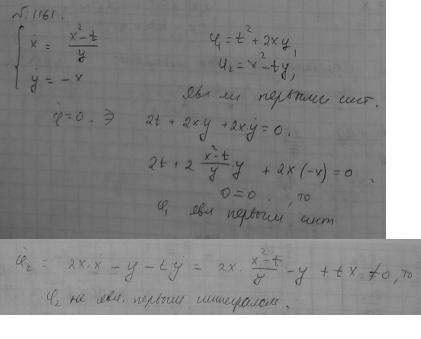 N 1161.
ẋ = (x²-t)/y
φ₁ = t² + 2xy,
ẏ = -x
φ₂ = x² - ty,
явл ли первыми инт.
φ̇ = 0. ⇒ 2t + 2ẋy + 2xẏ = 0.
2t + 2 (x²-t)/y · y + 2x(-x) = 0
0 = 0. , то
φ₁ явл первым инт
φ̇₂ = 2x·ẋ - y - tẏ = 2x · (x²-t)/y - y + tx ≠ 0, то
φ₂ не явл. первым интегралом.